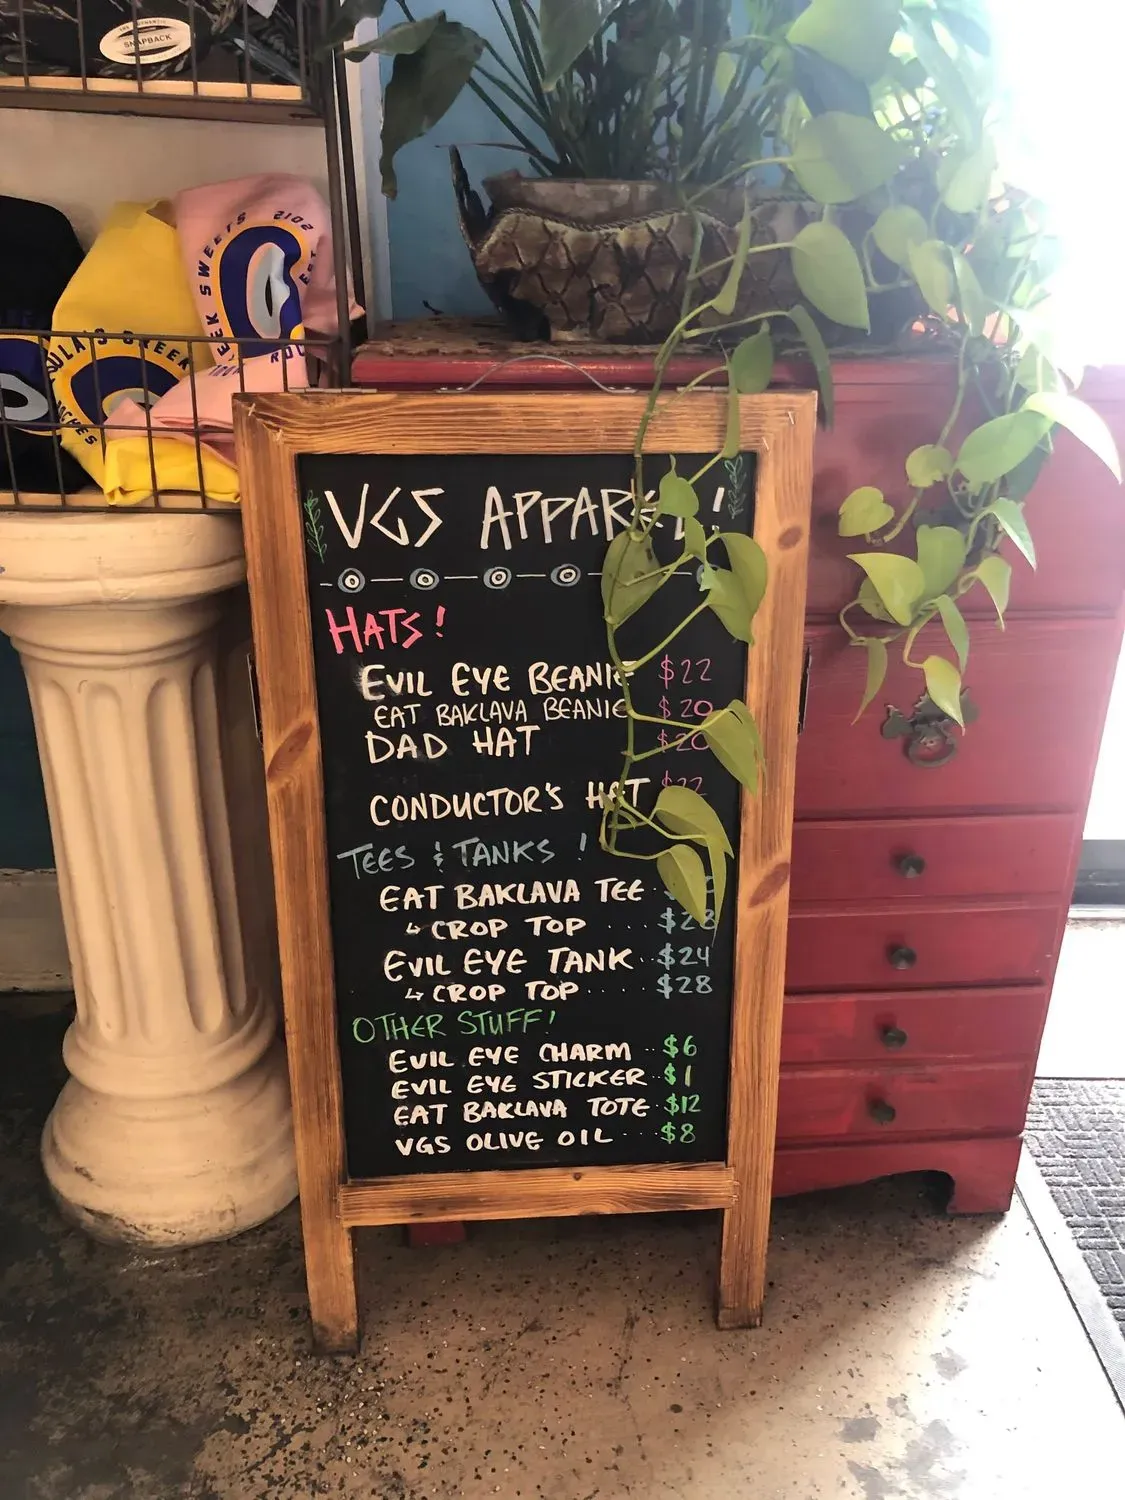 THE AUTHENTIC
SNAPBACK
EEK SWEETS 2102
VGS APPAREL!
HATS!
EVIL EYE BEANIE $22
EAT BAKLAVA BEANIE $20
DAD HAT $20
CONDUCTOR'S HAT $22
TEES & TANKS!
EAT BAKLAVA TEE
↳ CROP TOP .... $28
EVIL EYE TANK .. $24
↳ CROP TOP .... $28
OTHER STUFF!
EVIL EYE CHARM .. $6
EVIL EYE STICKER .. $1
EAT BAKLAVA TOTE .. $12
VGS OLIVE OIL .... $8